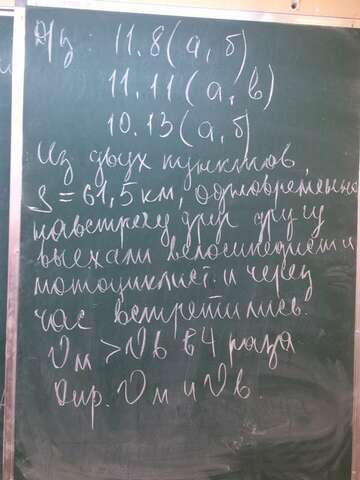 Д/з: 11.8(а,б)
11.11(а,в)
10.13(а,б)
Из двух пунктов,
S=61,5км, одновременно
навстречу друг другу
выехали велосипедист и
мотоциклист и через
час встретились.
Vм >Vв в 4 раза
Опр. Vм и Vв.